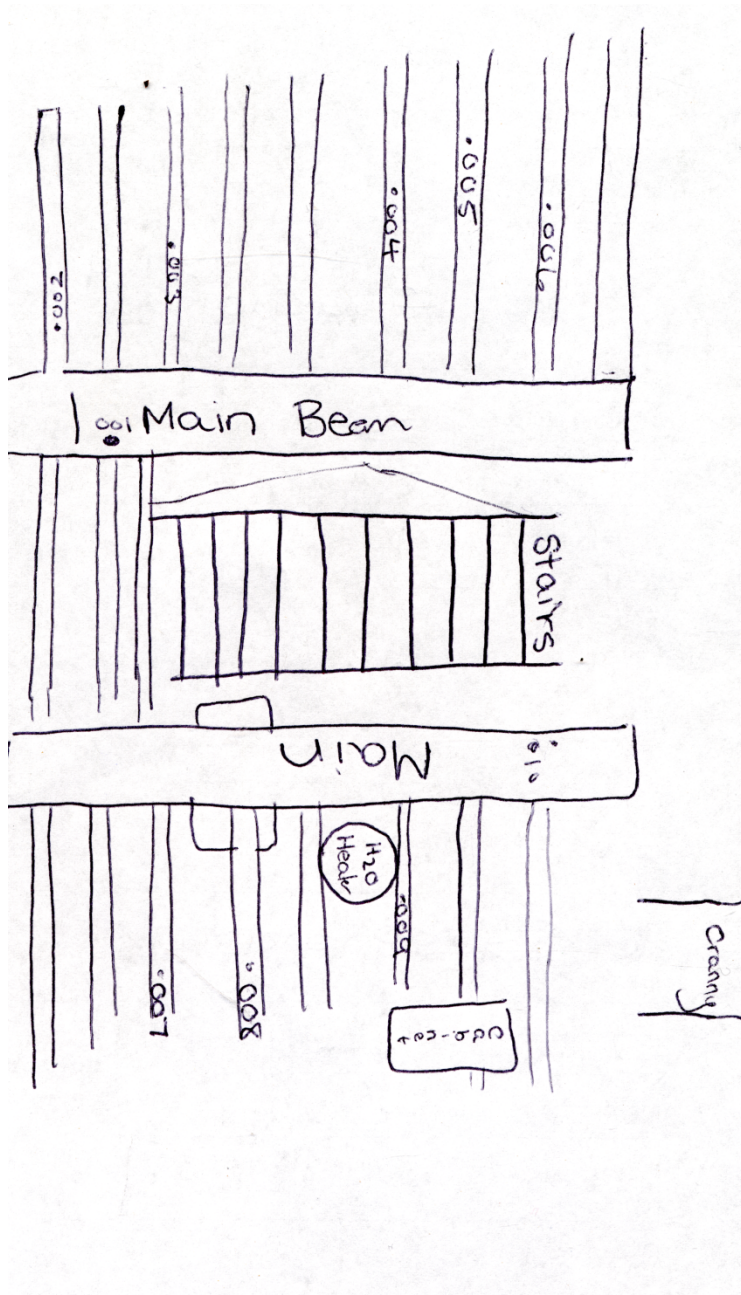 .002
.003
.004
.005
.006
001 Main Beam
Stairs
Main
010
H2O
Heater
.009
.007
.008
Cab-
inet
Cranny